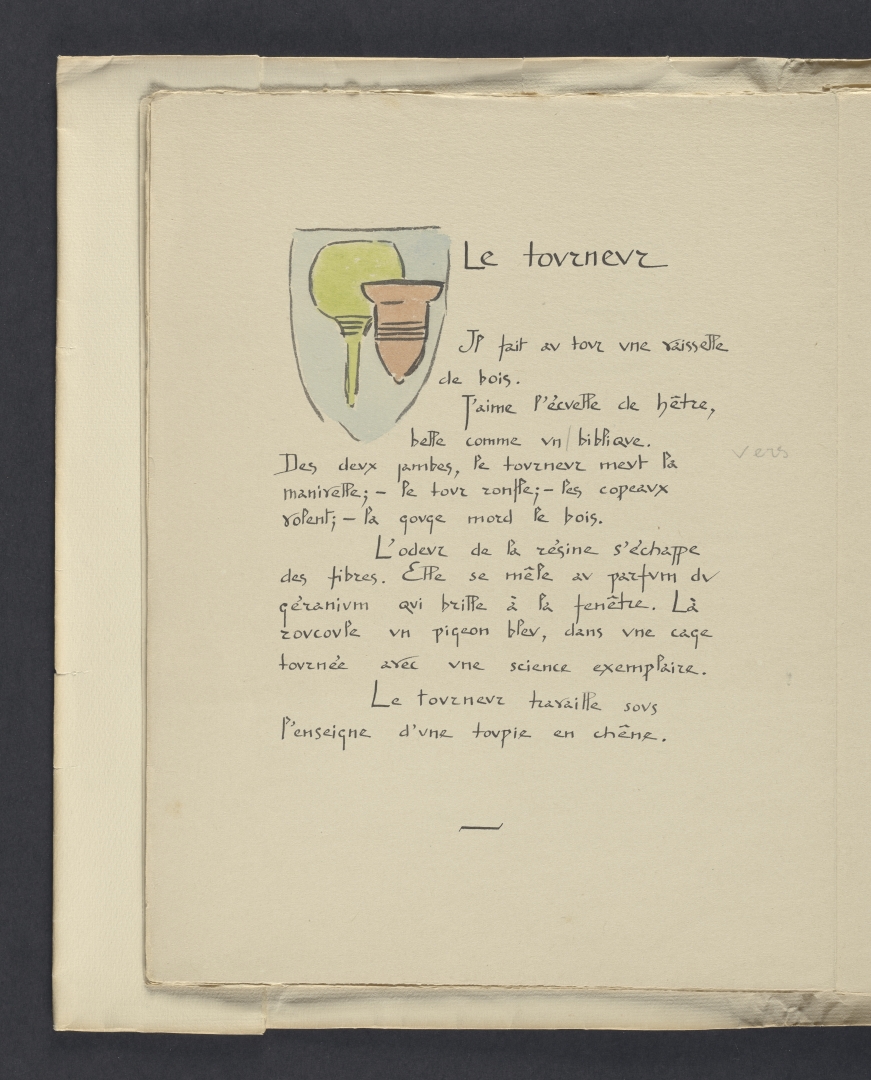 Le tourneur
Il fait au tour une vaisselle
de bois.
J'aime l'écuelle de hêtre,
belle comme un / biblique.
vers
Des deux jambes, le tourneur meut la
manivelle; – le tour ronfle; – les copeaux
volent; – la gouge mord le bois.
L'odeur de la résine s'échappe
des fibres. Elle se mêle au parfum du
géranium qui brille à la fenêtre. Là
roucoule un pigeon bleu, dans une cage
tournée avec une science exemplaire.
Le tourneur travaille sous
l'enseigne d'une toupie en chêne.